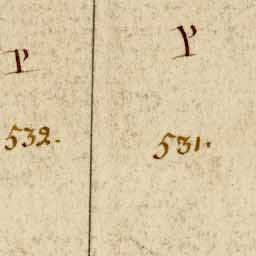 P P
532. 531.